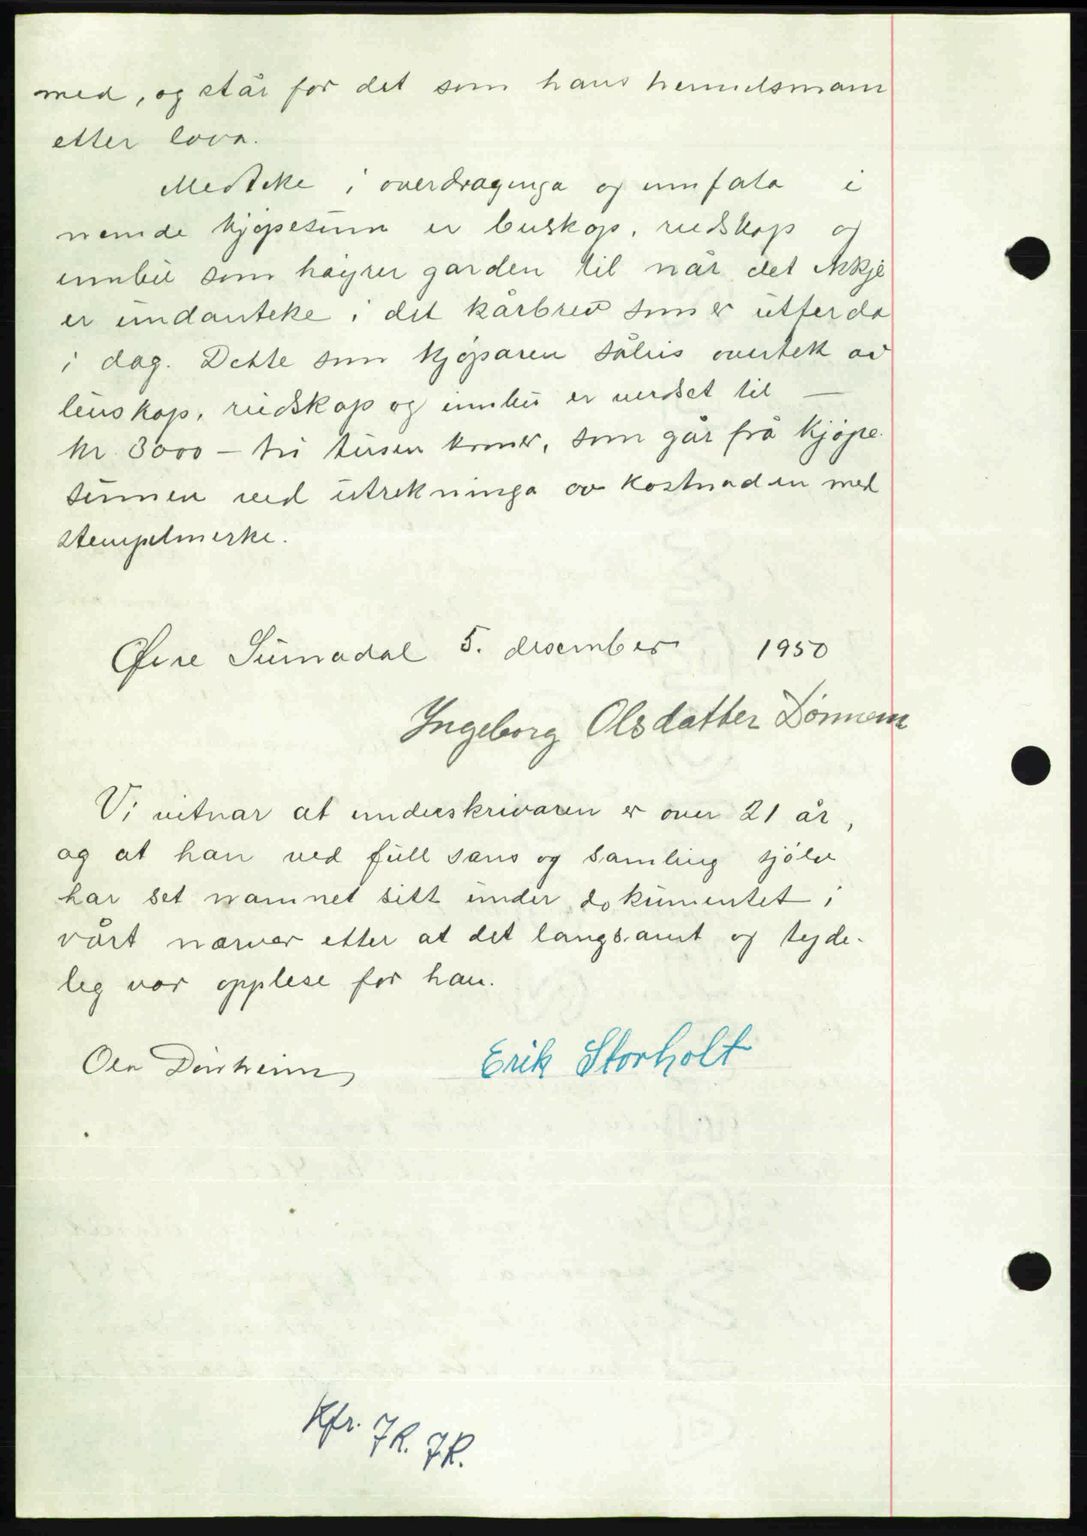 med, og står for det som hans heimelsmann
etter lova.
Medteke i overdraginga og umfata i
nemde kjøpesum er buskap, reidskap og
innbu som høyrer garden til når det ikkje
er undanteke i det kårbrev som er utferda
i dag. Dette som kjøparen såleis overtek av
buskap, reidskap og innbu er verdset til —
kr. 3000 – tri tusen kroner, som går frå kjøpe-
summen ved utrekninga av kostnaden med
stempelmerke.
Øvre Surnadal 5. desember 1950
Ingeborg Olsdatter Dønnem
Vi vitnar at underskrivaren er over 21 år,
og at han ved full sans og samling sjølv
har set namnet sitt under dokumentet i
vårt nærver etter at det langsamt og tyde-
leg var opplese for han.
Ola Dønheim Erik Storholt
Kfr. JR. JR.